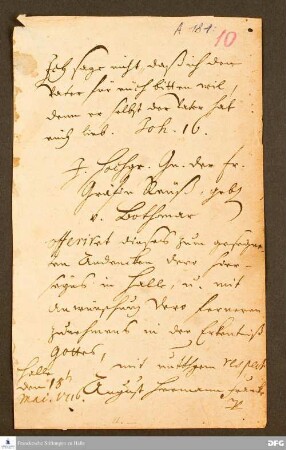 A 184
10
Ich sage nicht, daß ich den
Vater für euch bitten will,
denn er selbst der Vater hat
euch lieb. Joh. 16.
J. Hochgr. Gn. der Fr.
Gräfin Reuß, geb.
v. Bothmar
offeriret dieses zum gesegne-
ten Andencken dero hier-
seyns in Halle, u. mit
anwünschung dero ferneren
zunehmens in der Erkentniß
Gottes,
mit respect
Halle
den 18
Mai. 1716.
August Hermann Francke
Franckesche Stiftungen zu Halle
DFG